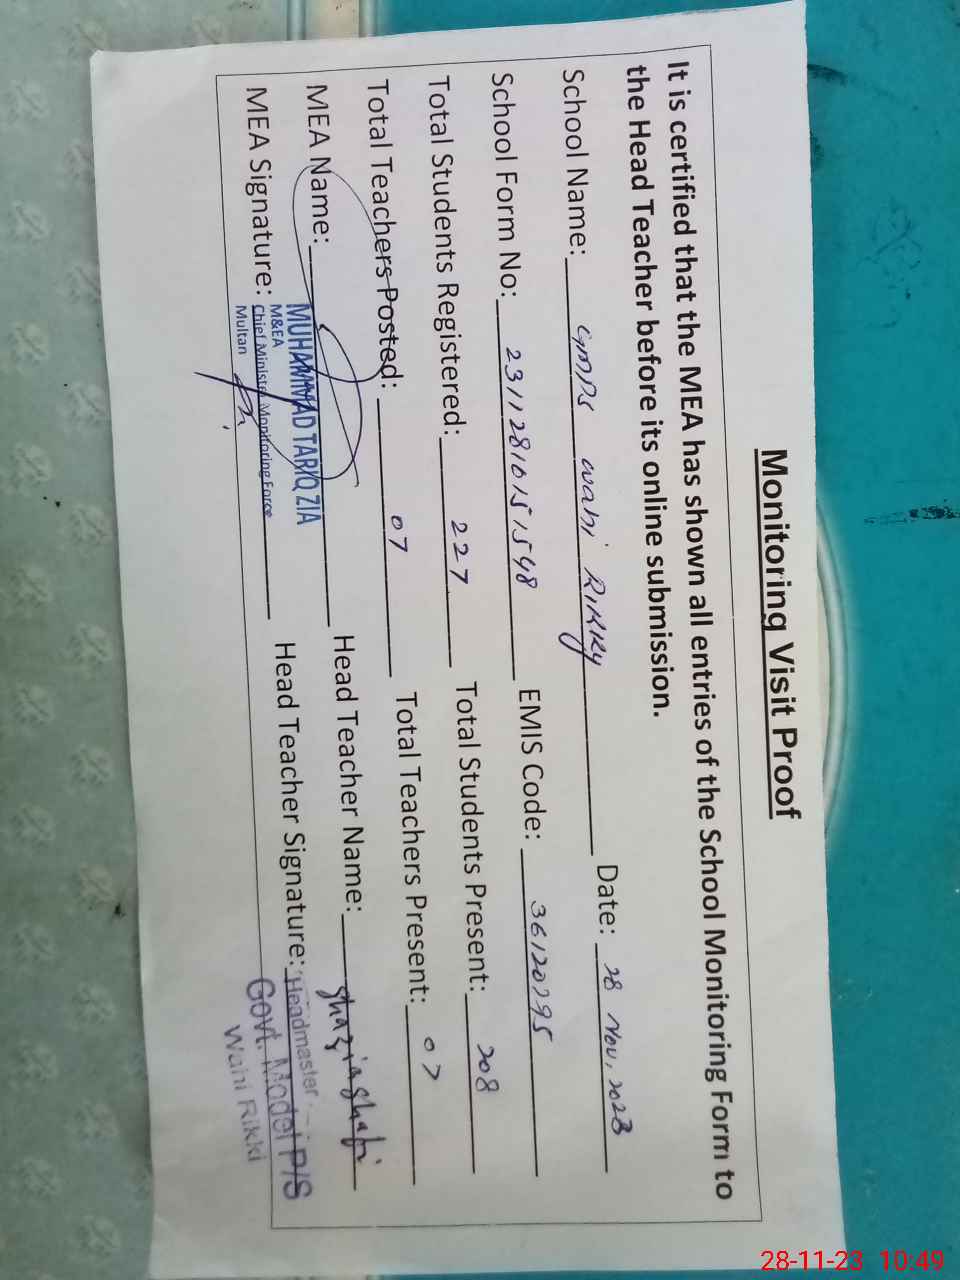 Monitoring Visit Proof
It is certified that the MEA has shown all entries of the School Monitoring Form to
the Head Teacher before its online submission.
School Name: GMPS Wahi Rikky Date: 28 Nov, 2023
School Form No: 23112810151548 EMIS Code: 36120295
Total Students Registered: 227 Total Students Present: 208
Total Teachers Posted: 07 Total Teachers Present: 07
MEA Name: MUHAMMAD TARIQ ZIA Head Teacher Name: Shazia Shafi
M&EA
MEA Signature: Chief Minister Monitoring Force Head Teacher Signature: Headmaster
Multan
Govt. Model P/S
Wahi Rikki
28-11-23 10:49